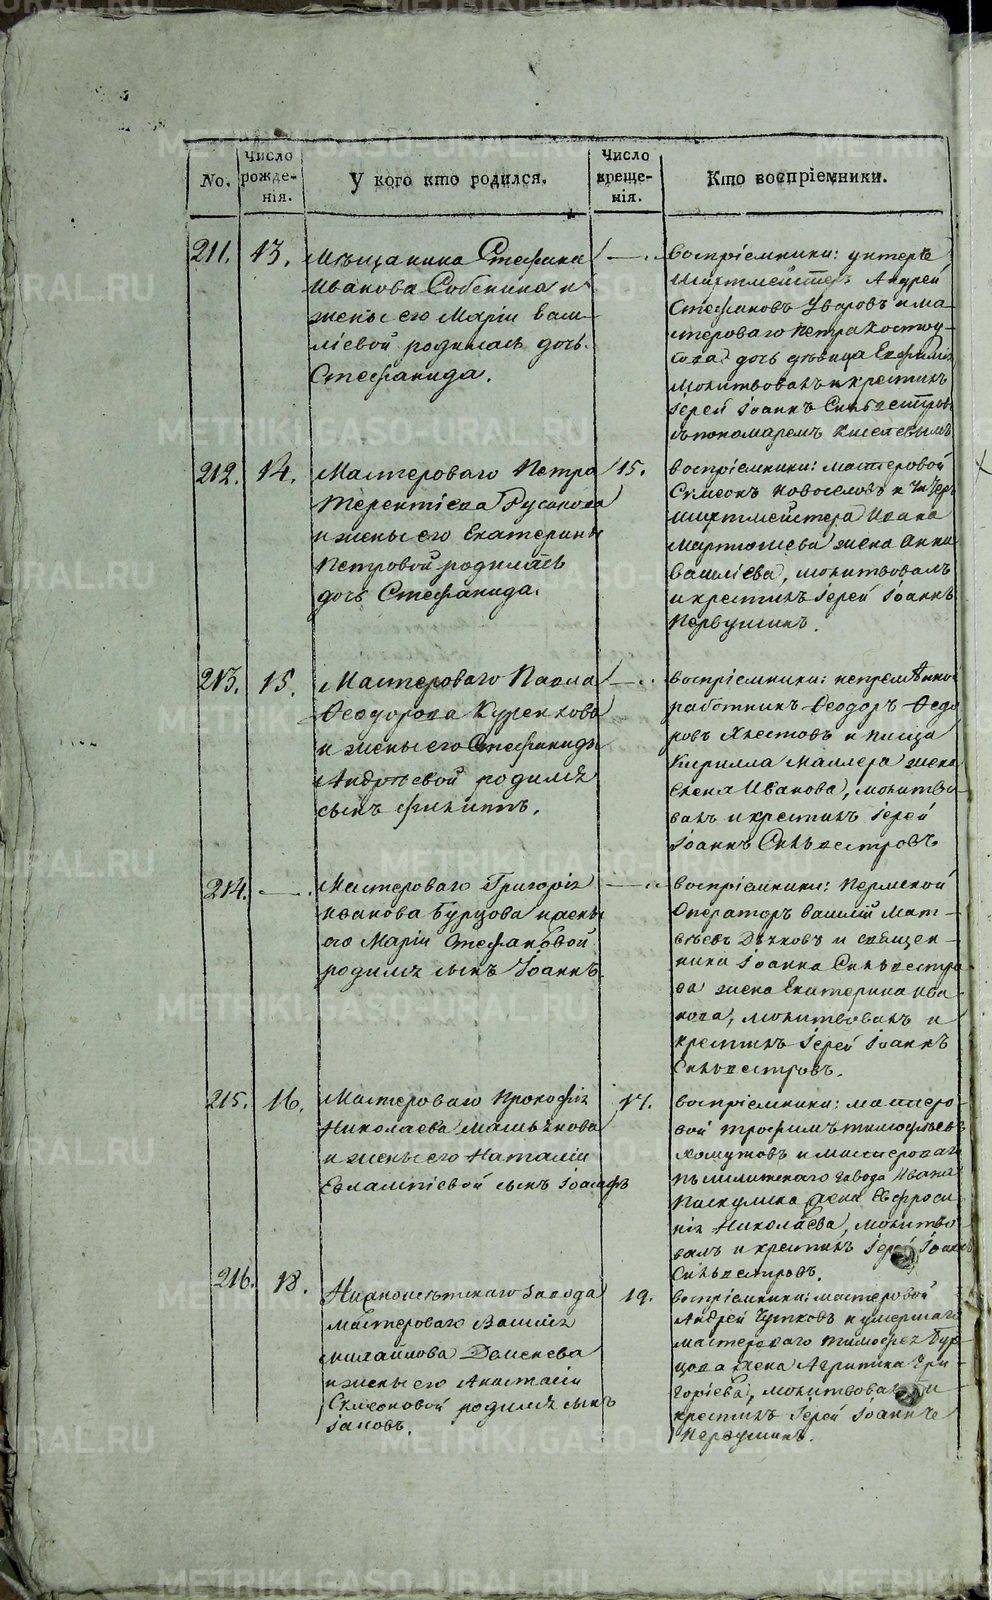 No.
Число рожде- нія.
У кого кто родился.
Число креще- нія.
Кто воспріемники.
211. 13.
Мѣщанина Стефана
Иванова Собенина и
жены его Маріи Васи-
ліевой родилась дочь
Стефанида.
Воспріемники: унтеръ
Шихтмейстеръ Андрей
Стефановъ Уваровъ и ма-
стероваго Петра
дочь дѣвица Евфимія
Молитвовалъ и крестилъ
Іерей Іоаннъ Сильвестровъ
съ пономаремъ Киселевымъ
212. 14.
Мастероваго Петра
Терентіева Русакова
и жены его Екатерины
Петровой родилась
дочь Стефанида.
15.
Воспріемники: мастеровой
Симеонъ Новоселовъ и Унтеръ
шихтмейстера Ивана
Мартюшева жена Анна
Василіева, молитвовалъ
и крестилъ Іерей Іоаннъ
Первушинъ.
213. 15.
Мастероваго Павла
Ѳеодорова Куренкова
и жены его Стефаниды
Андреевой родился
сынъ Филиппъ.
Воспріемники: непремѣнной
работникъ Ѳеодоръ Ѳедо
ровъ Хлестовъ и писца
Кирилла Маллера жена
Елена Иванова, молитво-
валъ и крестилъ Іерей
Іоаннъ Сильвестровъ
214.
Мастероваго Григорія
Иванова Бурцова и жены
его Маріи Стефановой
родился сынъ Іоаннъ.
Воспріемники: Пермской
Операторъ Василій Мат-
вѣевъ и священ-
ника Іоанна Сильвестро
ва жена Екатерина Ива
нова, молитвовалъ и
крестилъ Іерей Іоаннъ
Сильвестровъ.
215. 16.
Мастероваго Прокофія
Николаева
и жены его Наталіи
Евлампіевой сынъ Іоасафъ
17.
Воспріемники: мастеро-
вой Трофимъ Тимофеевъ
Хомутовъ и мастероваго
Пышминскаго завода Ивана
жена Евфроси
нія Николаева, молитво
валъ и крестилъ Іерей Іоаннъ
Сильвестровъ.
216. 18.
Нижноисетскаго завода
мастероваго Василія
Михайлова Деменева
и жены его Анастасіи
Симеоновой родился сынъ
Іаковъ.
19.
Воспріемники: мастеровой
Андрей и умершаго
мастероваго Тимофея Бур
цова жена Агрипина Гри-
горіева, молитвовалъ и
крестилъ Іерей Іоаннъ
Первушинъ.
METRIKI.GASO-URAL.RU